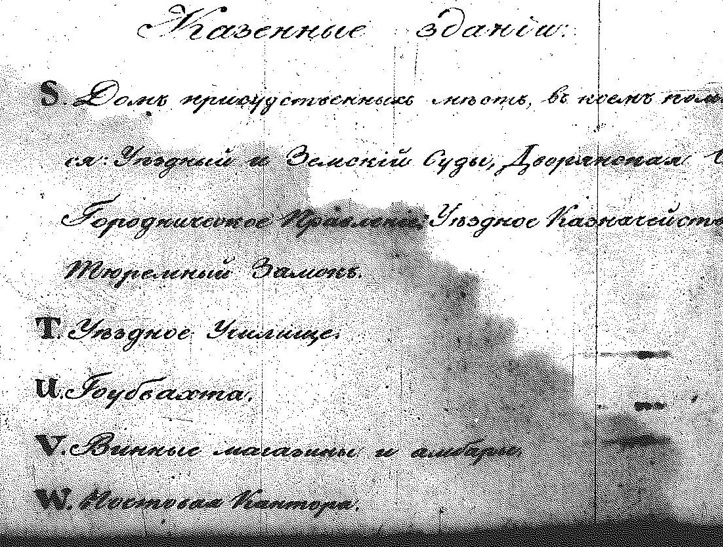 Казенные зданія:
S. Домъ присудственныхъ мѣстъ, въ коемъ пом
ся: Уѣздный и Земскій Суды, Дворянская
Городническое Правленіе; Уѣздное Казначейство
Тюремный Замокъ.
T. Уѣздное Училище.
U. Гоубвахта.
V. Винные магазины и амбары.
W. Постовая Кантора.